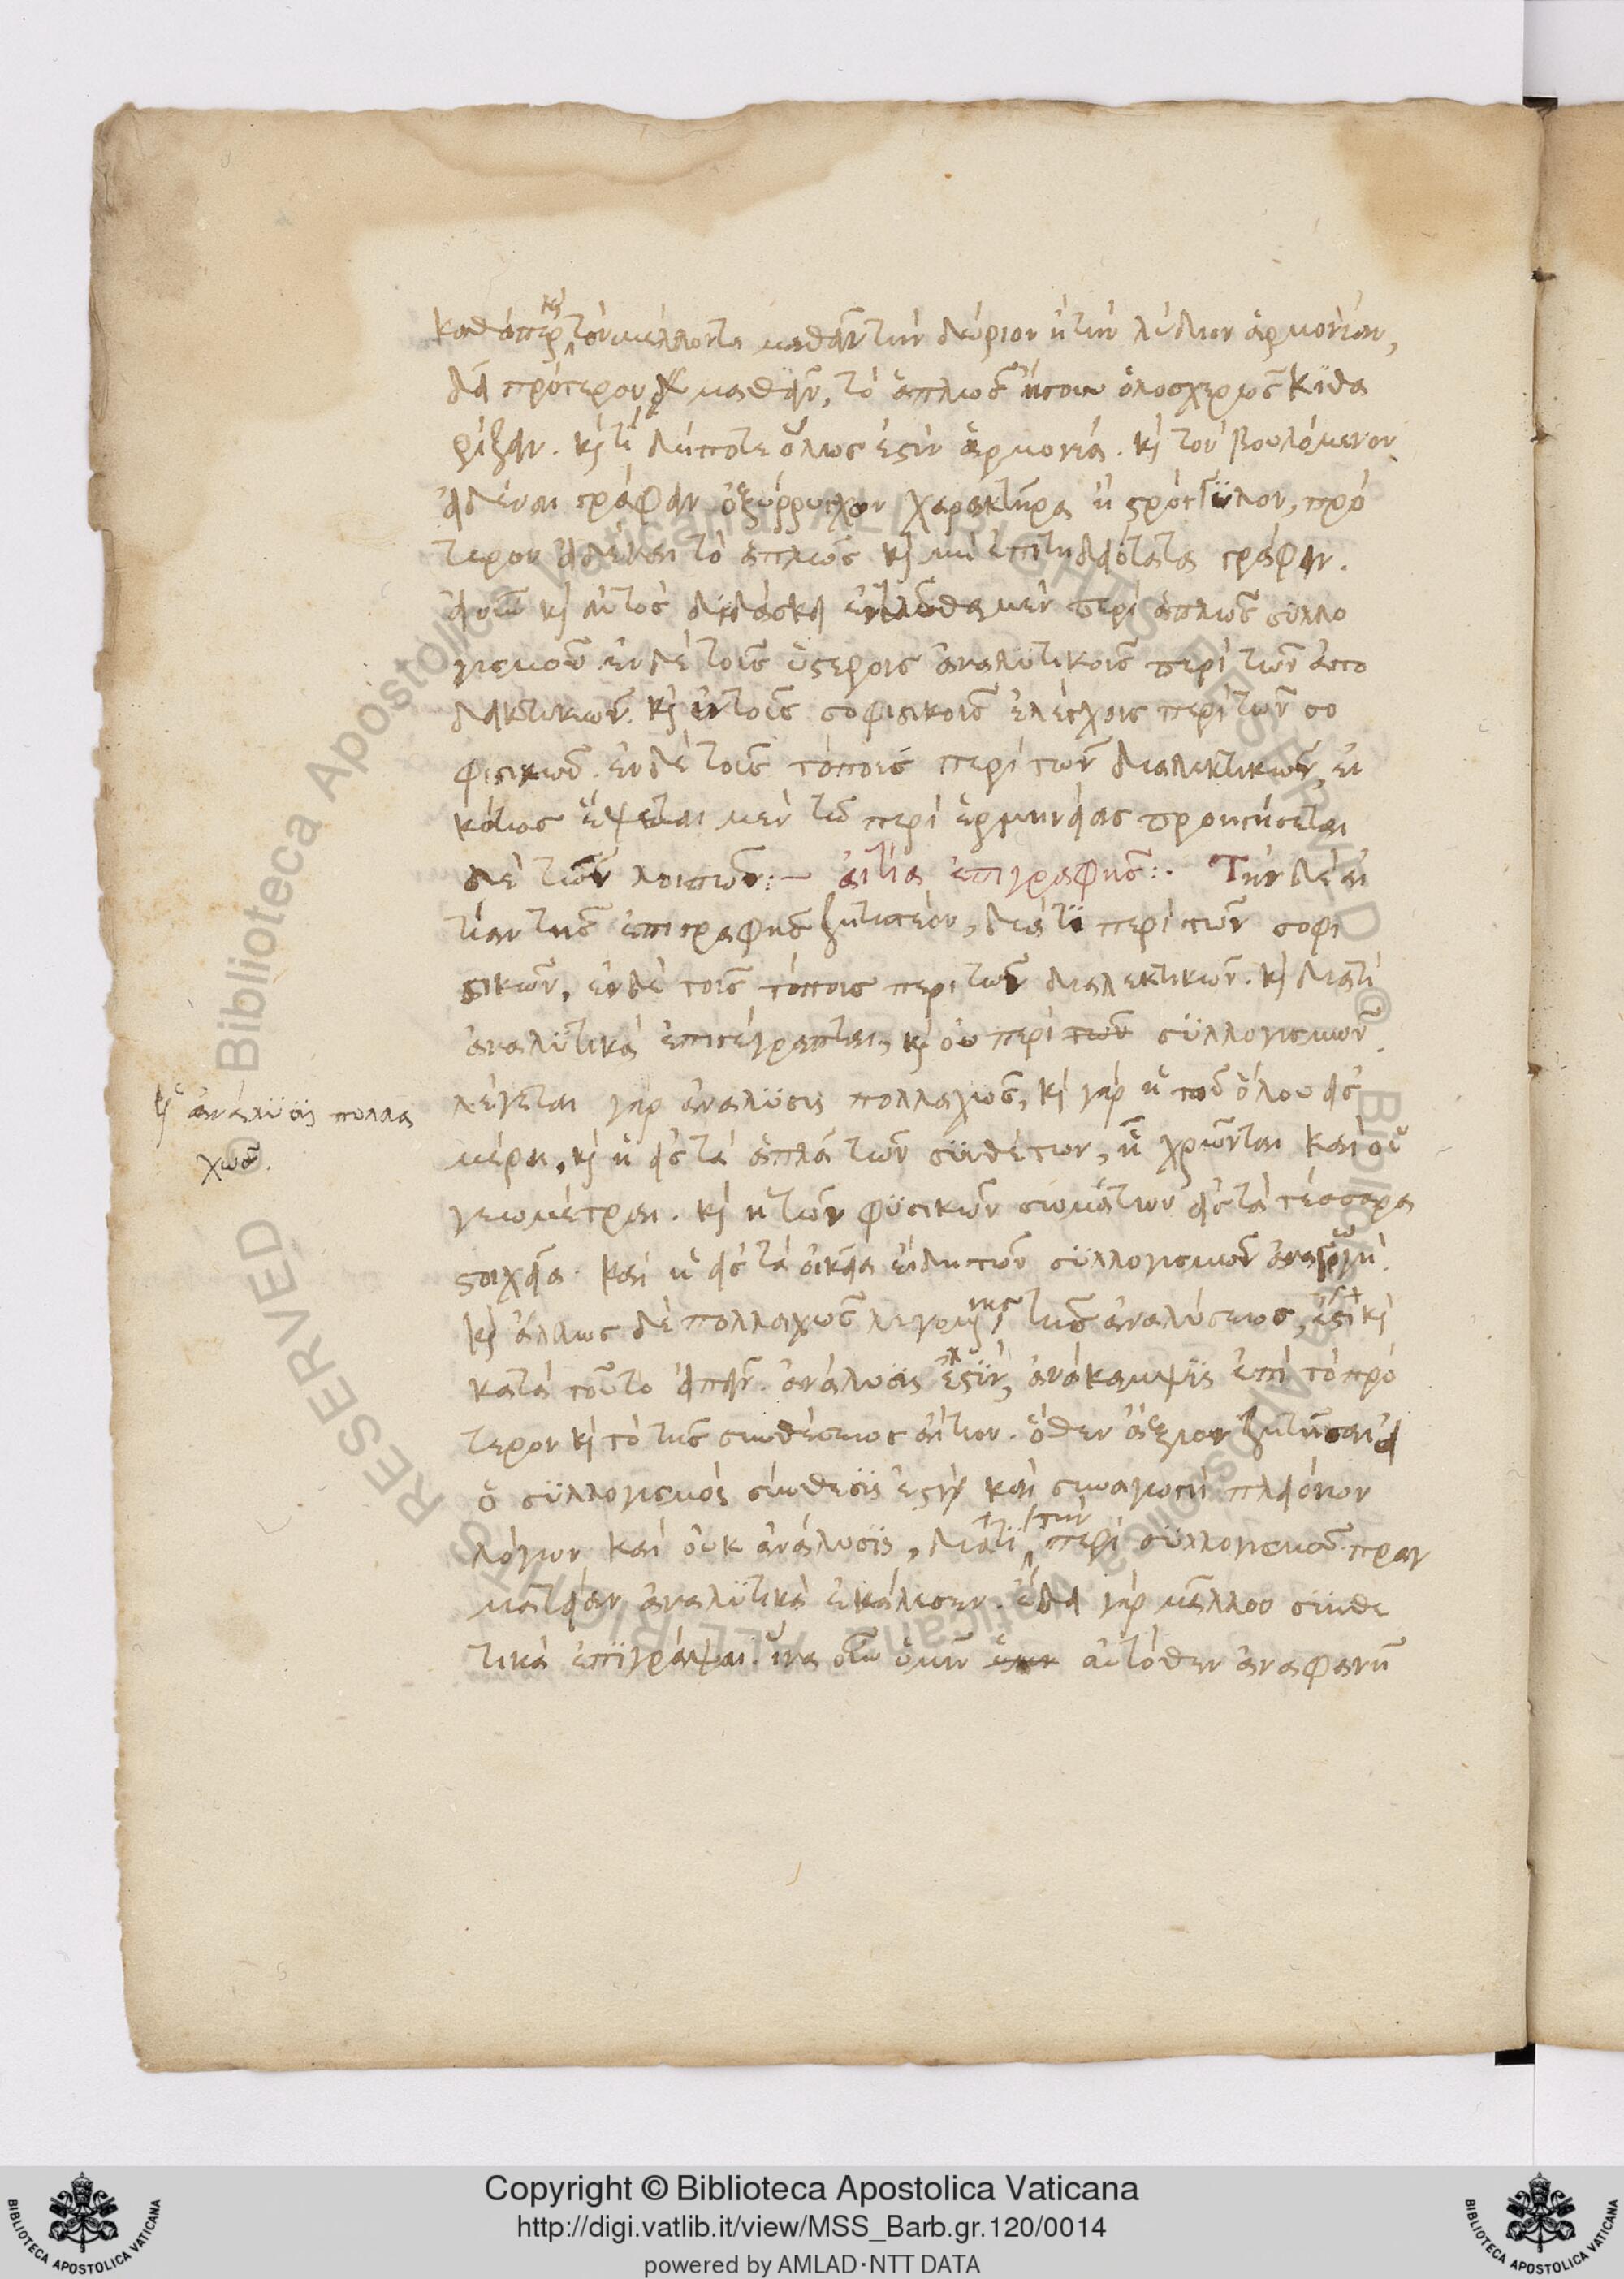 καθάπερ καὶ τὸν μέλλοντα μαθεῖν τὴν δώριον ἢ τὴν λύδιον ἁρμονίαν,
δεῖ πρότερον μαθεῖν, τὸ ἁπλῶς ἤτοι ὁλοσχερῶς κϊθα
ρίζειν. καὶ τί δήποτε ὅλως ἐστὶν ἁρμονία. καὶ τὸν βουλόμενον
εἰδέναι γράφειν ὀξύρρυγχον χαρακτῆρα ἢ στρογγΰλον, πρό
τερον εἰδέναι τὸ ἁπλῶς καὶ μὴ ἐπιτηδειότατα γράφειν.
καὶ αὐτὸς διδάσκει ἐνταῦθα μὲν περὶ ἁπλῶς συλλο
γισμοῦ. ἐν δὲ τοῖς ὑστέροις ἀναλυτικοῖς περὶ τῶν ἀπο
δεικτικῶν. καὶ ἐν τοῖς σοφιστικοῖς ἐλέγχοις περὶ τῶν σο
φιστικῶν. ἐν δὲ τοῖς τόποις περὶ τῶν διαλεκτικῶν, εἰ
κότως ἕψεται μὲν τῶ περὶ ἑρμηνείας προηγήσεται
δὲ τῶν λοιπῶν:— αἰτία ἐπιγραφῆς:· Τὴν δὲ αἰ
τίαν τῆς ἐπιγραφῆς ζητητέον, διὰ τϊ περὶ τῶν σοφι
στικῶν, ἐν δὲ τοῖς τόποις περὶ τῶν διαλεκτικῶν. καὶ διατὶ
ἀναλυτικὰ ἐπιγέγραπται, καὶ οὐ περὶ τῶν συλλογισμῶν.
λέγεται γὰρ ἀνάλυσις πολλαχῶς, καὶ γὰρ ἡ τοῦ ὅλου εἰς
μέρη, καὶ ἡ εἰς τὰ ἁπλᾶ τῶν συνθέτων, ἧ χρῶνται καὶ οἱ
γεωμέτραι. καὶ ἡ τῶν φυσικῶν σωμάτων εἰς τὰ τέσσαρα
στοιχεῖα. καὶ ἡ εἰς τὰ οἰκεῖα εἴδη τῶν συλλογισμῶν ἀναγωγή.
καὶ ἄλλως δὲ πολλαχῶς λεγομένης τῆς ἀναλύσεως, ἔστι καὶ
κατὰ τοῦτο εἰπεῖν. ἀνάλυσϊς ἐστϊν, ἀνάκαμψϊς ἐπὶ τὸ πρό
τερον καὶ τὸ τῆς συνθέσεως αἴτιον. ὅθεν ἄξιον ζητῆσαι εἰ
ὁ συλλογισμὸς σύνθεσϊς ἐστὶν καὶ συναγωγὴ πλειόνων
λόγων καὶ οὐκ ἀνάλυσϊς, διατϊ τὴν περὶ συλλογισμοῦ πραγ
ματείαν ἀναλυτικὰ ἐκάλεσεν. ἔδει γὰρ μᾶλλον συνθε
τικὰ ἐπιγράψαι. ἵνα οὖν ὑμῖν αὐτόθεν ἀναφανῆ
ἡ ἀνάλϋσϊς πολλα
χῶς.
Copyright © Biblioteca Apostolica Vaticana
http://digi.vatlib.it/view/MSS_Barb.gr.120/0014
powered by AMLAD·NTT DATA
BIBLIOTECA APOSTOLICA VATICANA
BIBLIOTECA APOSTOLICA VATICANA